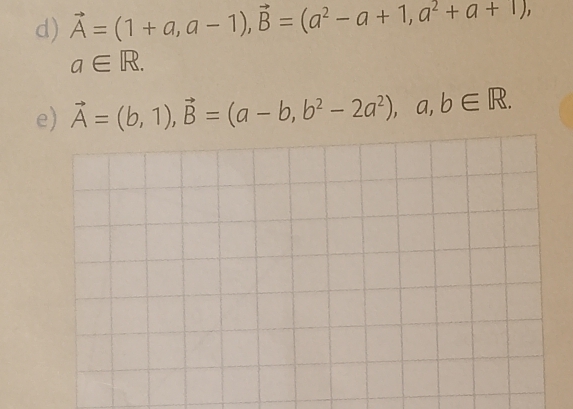 d) A⃗ = (1 + a, a − 1), B⃗ = (a² − a + 1, a² + a + 1),
a ∈ ℝ.
e) A⃗ = (b, 1), B⃗ = (a − b, b² − 2a²), a, b ∈ ℝ.